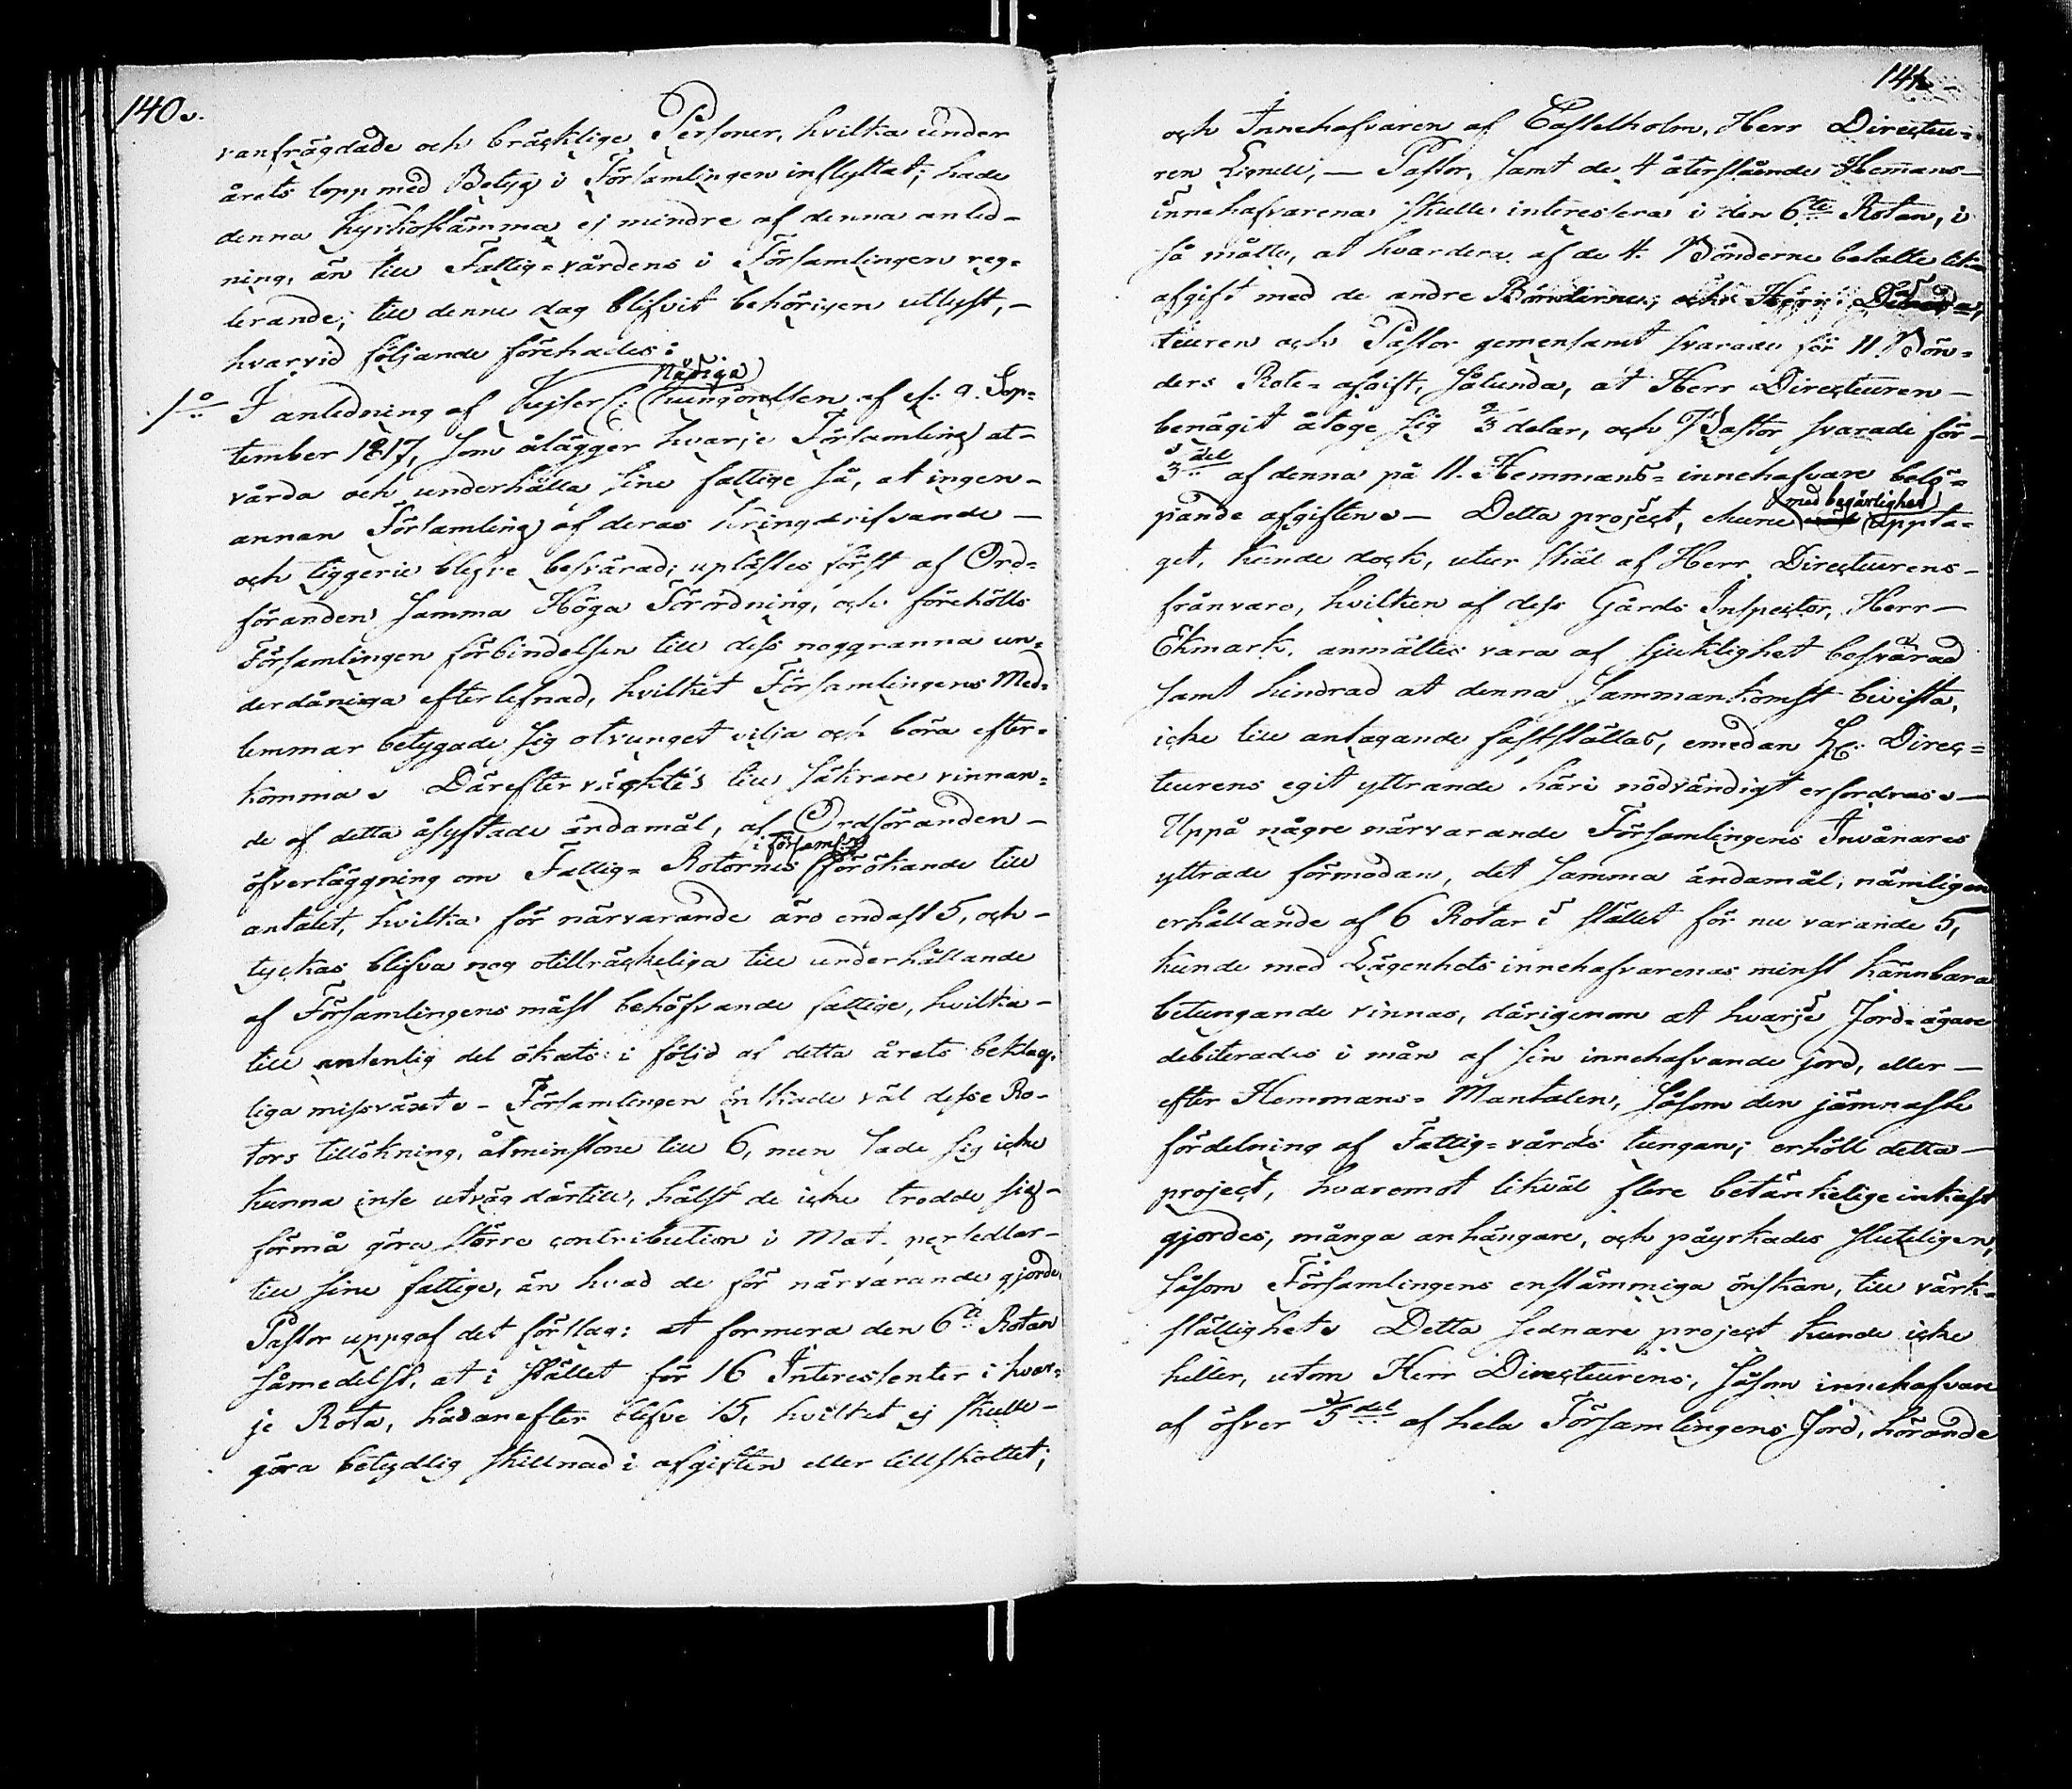 140.
vanfrägdade och bräcklige Personer, hvilka under
årets lopp med Betyg i Församlingen inflyttat; hade
denna Kyrkostämma ej mindre af denna anled-
ning, än till Fattig=vårdens i Församlingen reg-
lerande, till denne dag blifvit behörigen utlyst, -
hvarvid följande förehades:
1o I anledning af Kejserl: Nådiga Kungörelsen af d: 9. Sep=
tember 1817, som ålägger hvarje Församling at-
vårda och underhålla sine fattige så, at ingen -
annan Församling af deras kringdrifvande -
och tiggerie blefve besvärad; uplästes först af Ord=
föranden samma Höga Förordning, och förehölls
Församlingen förbindelsen till dess noggranna un=
derdåniga efterlefnad, hvilket Församlingens Med=
lemmar betygade sig otvunget vilja och böra efter=
komma. Därefter väcktes till säkrare vinnan=
de af detta åsyftade ändamål, af Ordföranden -
öfverläggning om Fattig= Rotornes i Församl: förökande till
antalet, hvilka för närvarande äro endast 5, och -
tyckas blifva nog otillräckeliga till underhållande
af Församlingens mäst behöfvande fattige, hvilka -
till antenlig del ökats i följd af detta årets beklag-
liga missväxt. - Församlingen önskade väl desse Ro-
tors tillökning, åtminstone till 6, men sade sig icke
kunna inse utväg därtill, hälst de icke trodde sig -
förmå göra större contribution i Mat. persedlar -
till sine fattige, än hvad de för närvarande gjorde.
Pastor uppgaf det förslag: at formera den 6te Rotan
såmedelst, at i stället för 16 Interessenter i hvar=
je Rota, hädanefter blefve 15, hvilket ej skulle -
göra betydlig skillnad i afgiften eller tillskottet;
141.
och Innehafvaren af Castelholm, Herr Directeu=
ren Lignell, - Pastor, samt de 4 återstående Hemans-
innehafvarena skulle interessera i den 6te Rotan, i
så måtto, at hvardera af de 4. Bönderne betalte lika
afgift med de andre Bönderne; och Herr Direc=
teuren och Pastor gemensamt svarade för 11 Bön=
ders Rote= afgift, sålunda, at Herr Directeuren -
benägit åtoge sig 2/3 delar, och Pastor svarade för -
1/3 del af denna på 11. Hemmans= innehafvare belö=
pande afgiften. - Detta project, ehuru med begärlighet uppta=
get, kunde dock, utur skäl af Herr Directeurens -
frånvaro, hvilken af dess Gårds Inspector, Herr -
Ekmark. anmältes vara af sjuklighet besvärad
samt hindrad at denna Sammankomst bivista,
icke till antagande fastställas, emedan Hr. Direc=
teurens egit yttrande häri nödvändigt erfordras. -
Uppå någre närvarande Församlingens Invånares
yttrade förmodan, det samma ändamål, nämligen
erhållande af 6 Rotar i stället för nu varande 5,
kunde med Lägenhets innehafvarenas minst kännbara
betungande vinnas, därigenom at hvarje Jord=ägare
debiterades i mån af sin innehafvande jord, eller -
efter Hemmans= Mantalen, såsom den jämnaste
fördelning af Fattig=vårds tungan; erhöll detta -
project, hvaremot likväl flere betänkelige inkast
gjordes, många anhängare, och påyrkades sluteligen,
såsom Församlingens enstämmiga önskan, till värk-
ställighet. Detta sednare project kunde icke
heller, utom Herr Directeurens, såsom innehafvare
af öfver 1/5 del af hela Församlingens Jord, hörande